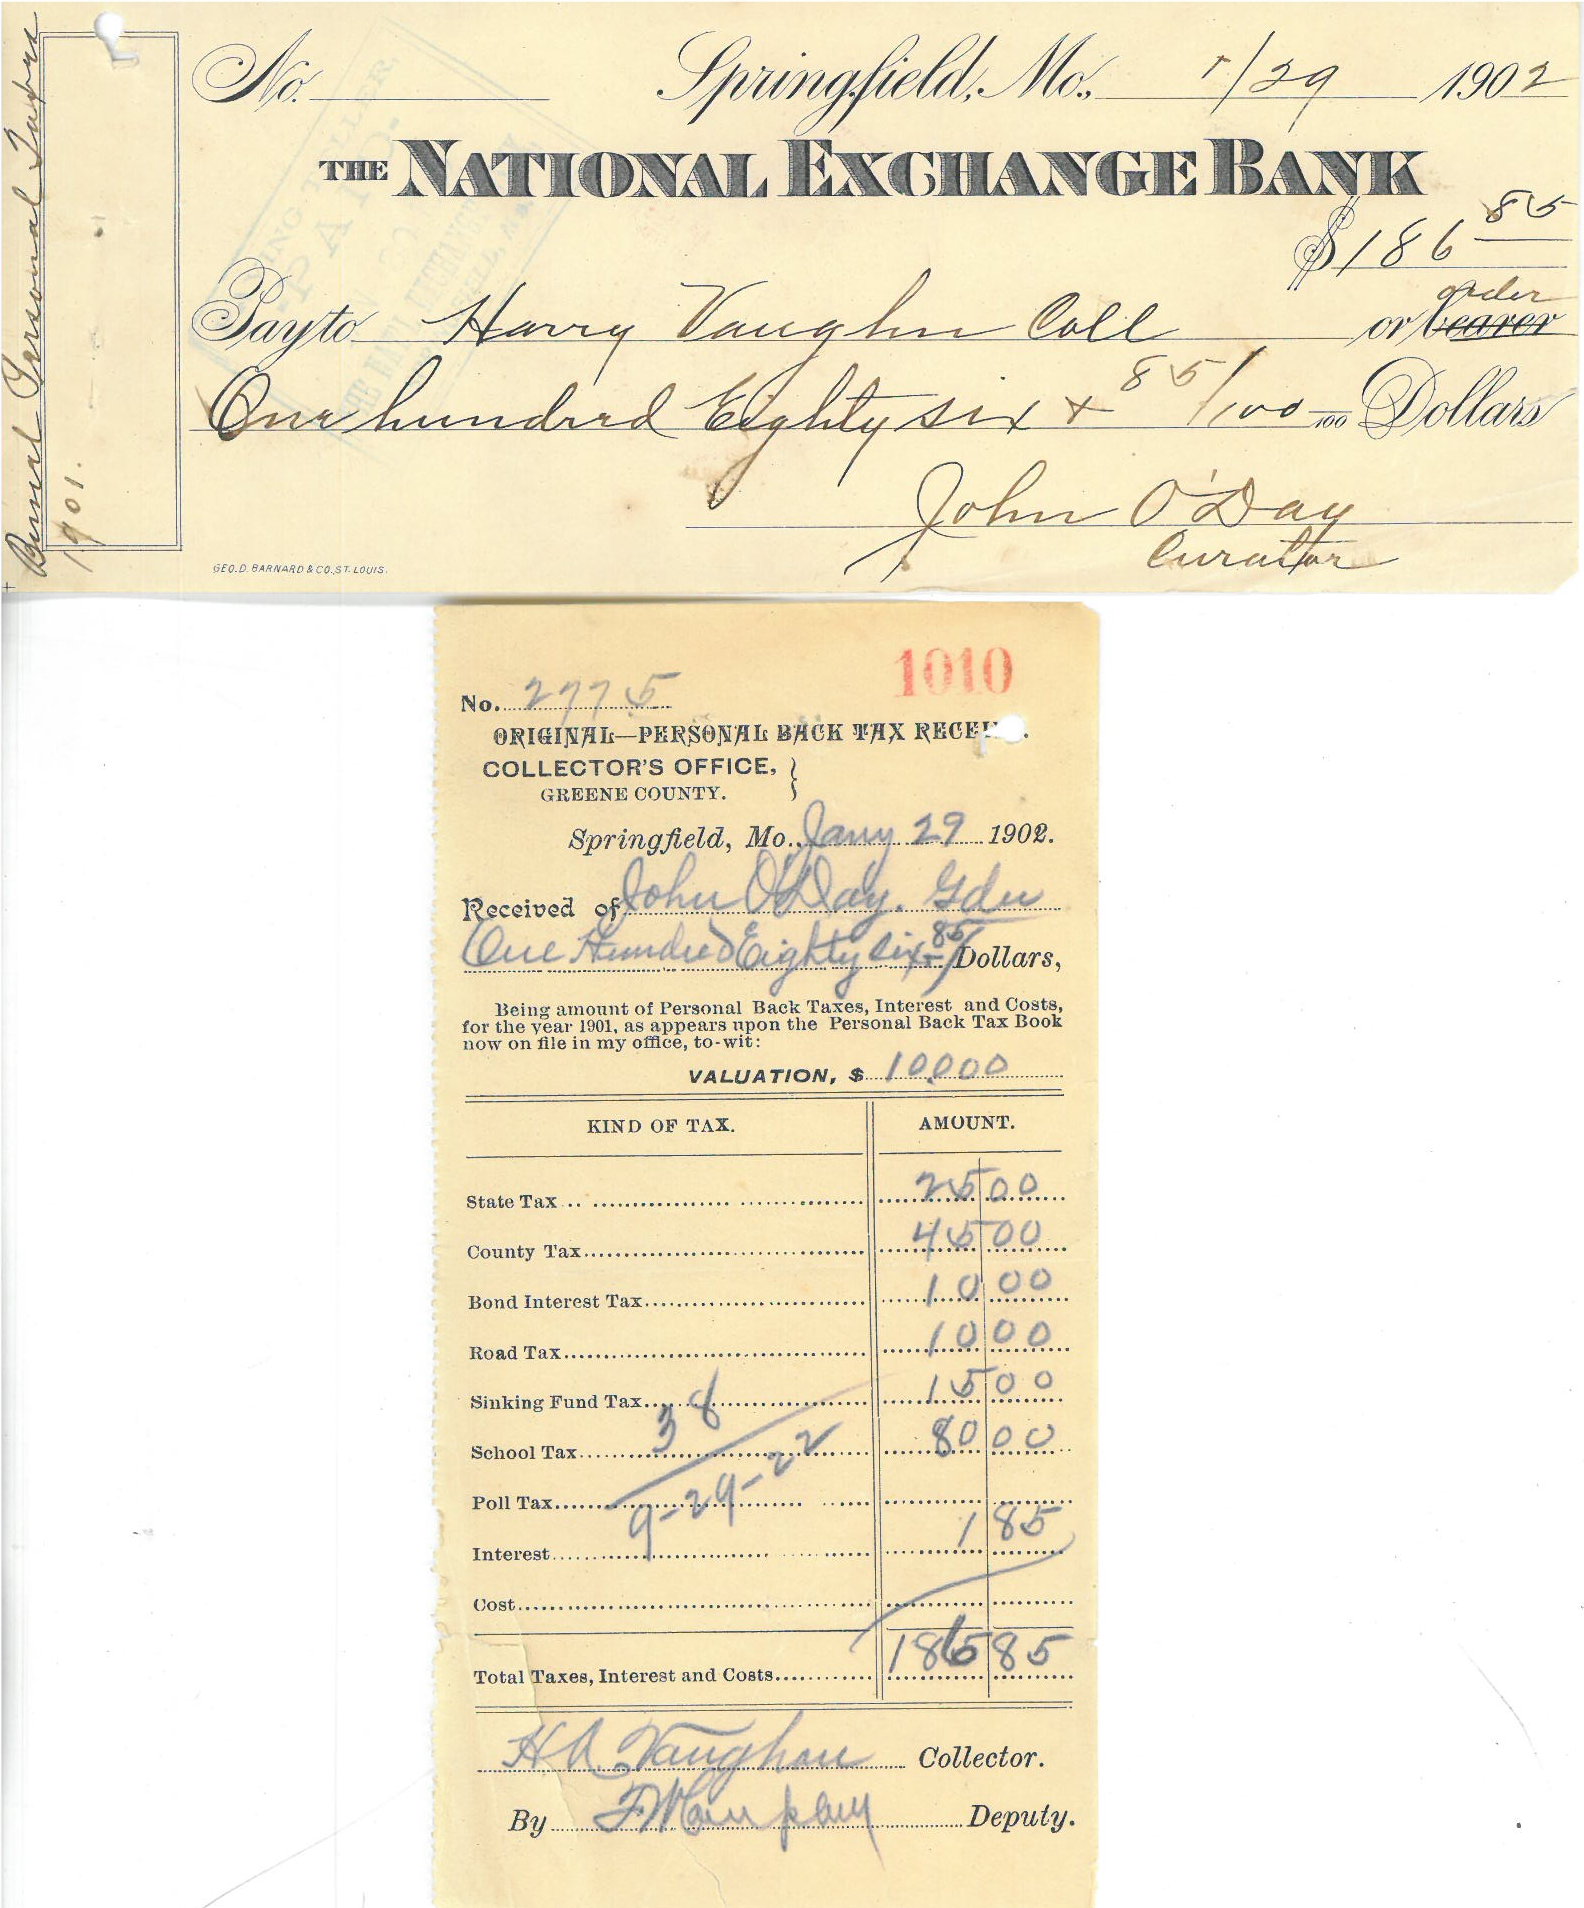 No.
Springfield, Mo., 1/29 1902
THE NATIONAL EXCHANGE BANK
$186 85
order
Pay to Harry Vaughn Coll or bearer
One hundred Eighty six + 85/100 100 Dollars
John O'Day
Curator
GEO. D. BARNARD & CO., ST. LOUIS.
Personal Taxes
1901.
PAID
1010
No. 2775
ORIGINAL—PERSONAL BACK TAX RECEI
COLLECTOR'S OFFICE, }
GREENE COUNTY.
Springfield, Mo., Jany 29 1902.
Received of John O'Day. Gdn
One Hundred Eighty six 85/ Dollars,
Being amount of Personal Back Taxes, Interest and Costs,
for the year 1901, as appears upon the Personal Back Tax Book
now on file in my office, to-wit:
VALUATION, $ 10000
KIND OF TAX. AMOUNT.
State Tax 25 00
County Tax 45 00
Bond Interest Tax 10 00
Road Tax 10 00
Sinking Fund Tax 15 00
38
School Tax 80 00
Poll Tax
9-29-22
Interest 1 85
Cost
Total Taxes, Interest and Costs 186 85
H A Vaughan Collector.
By Deputy.